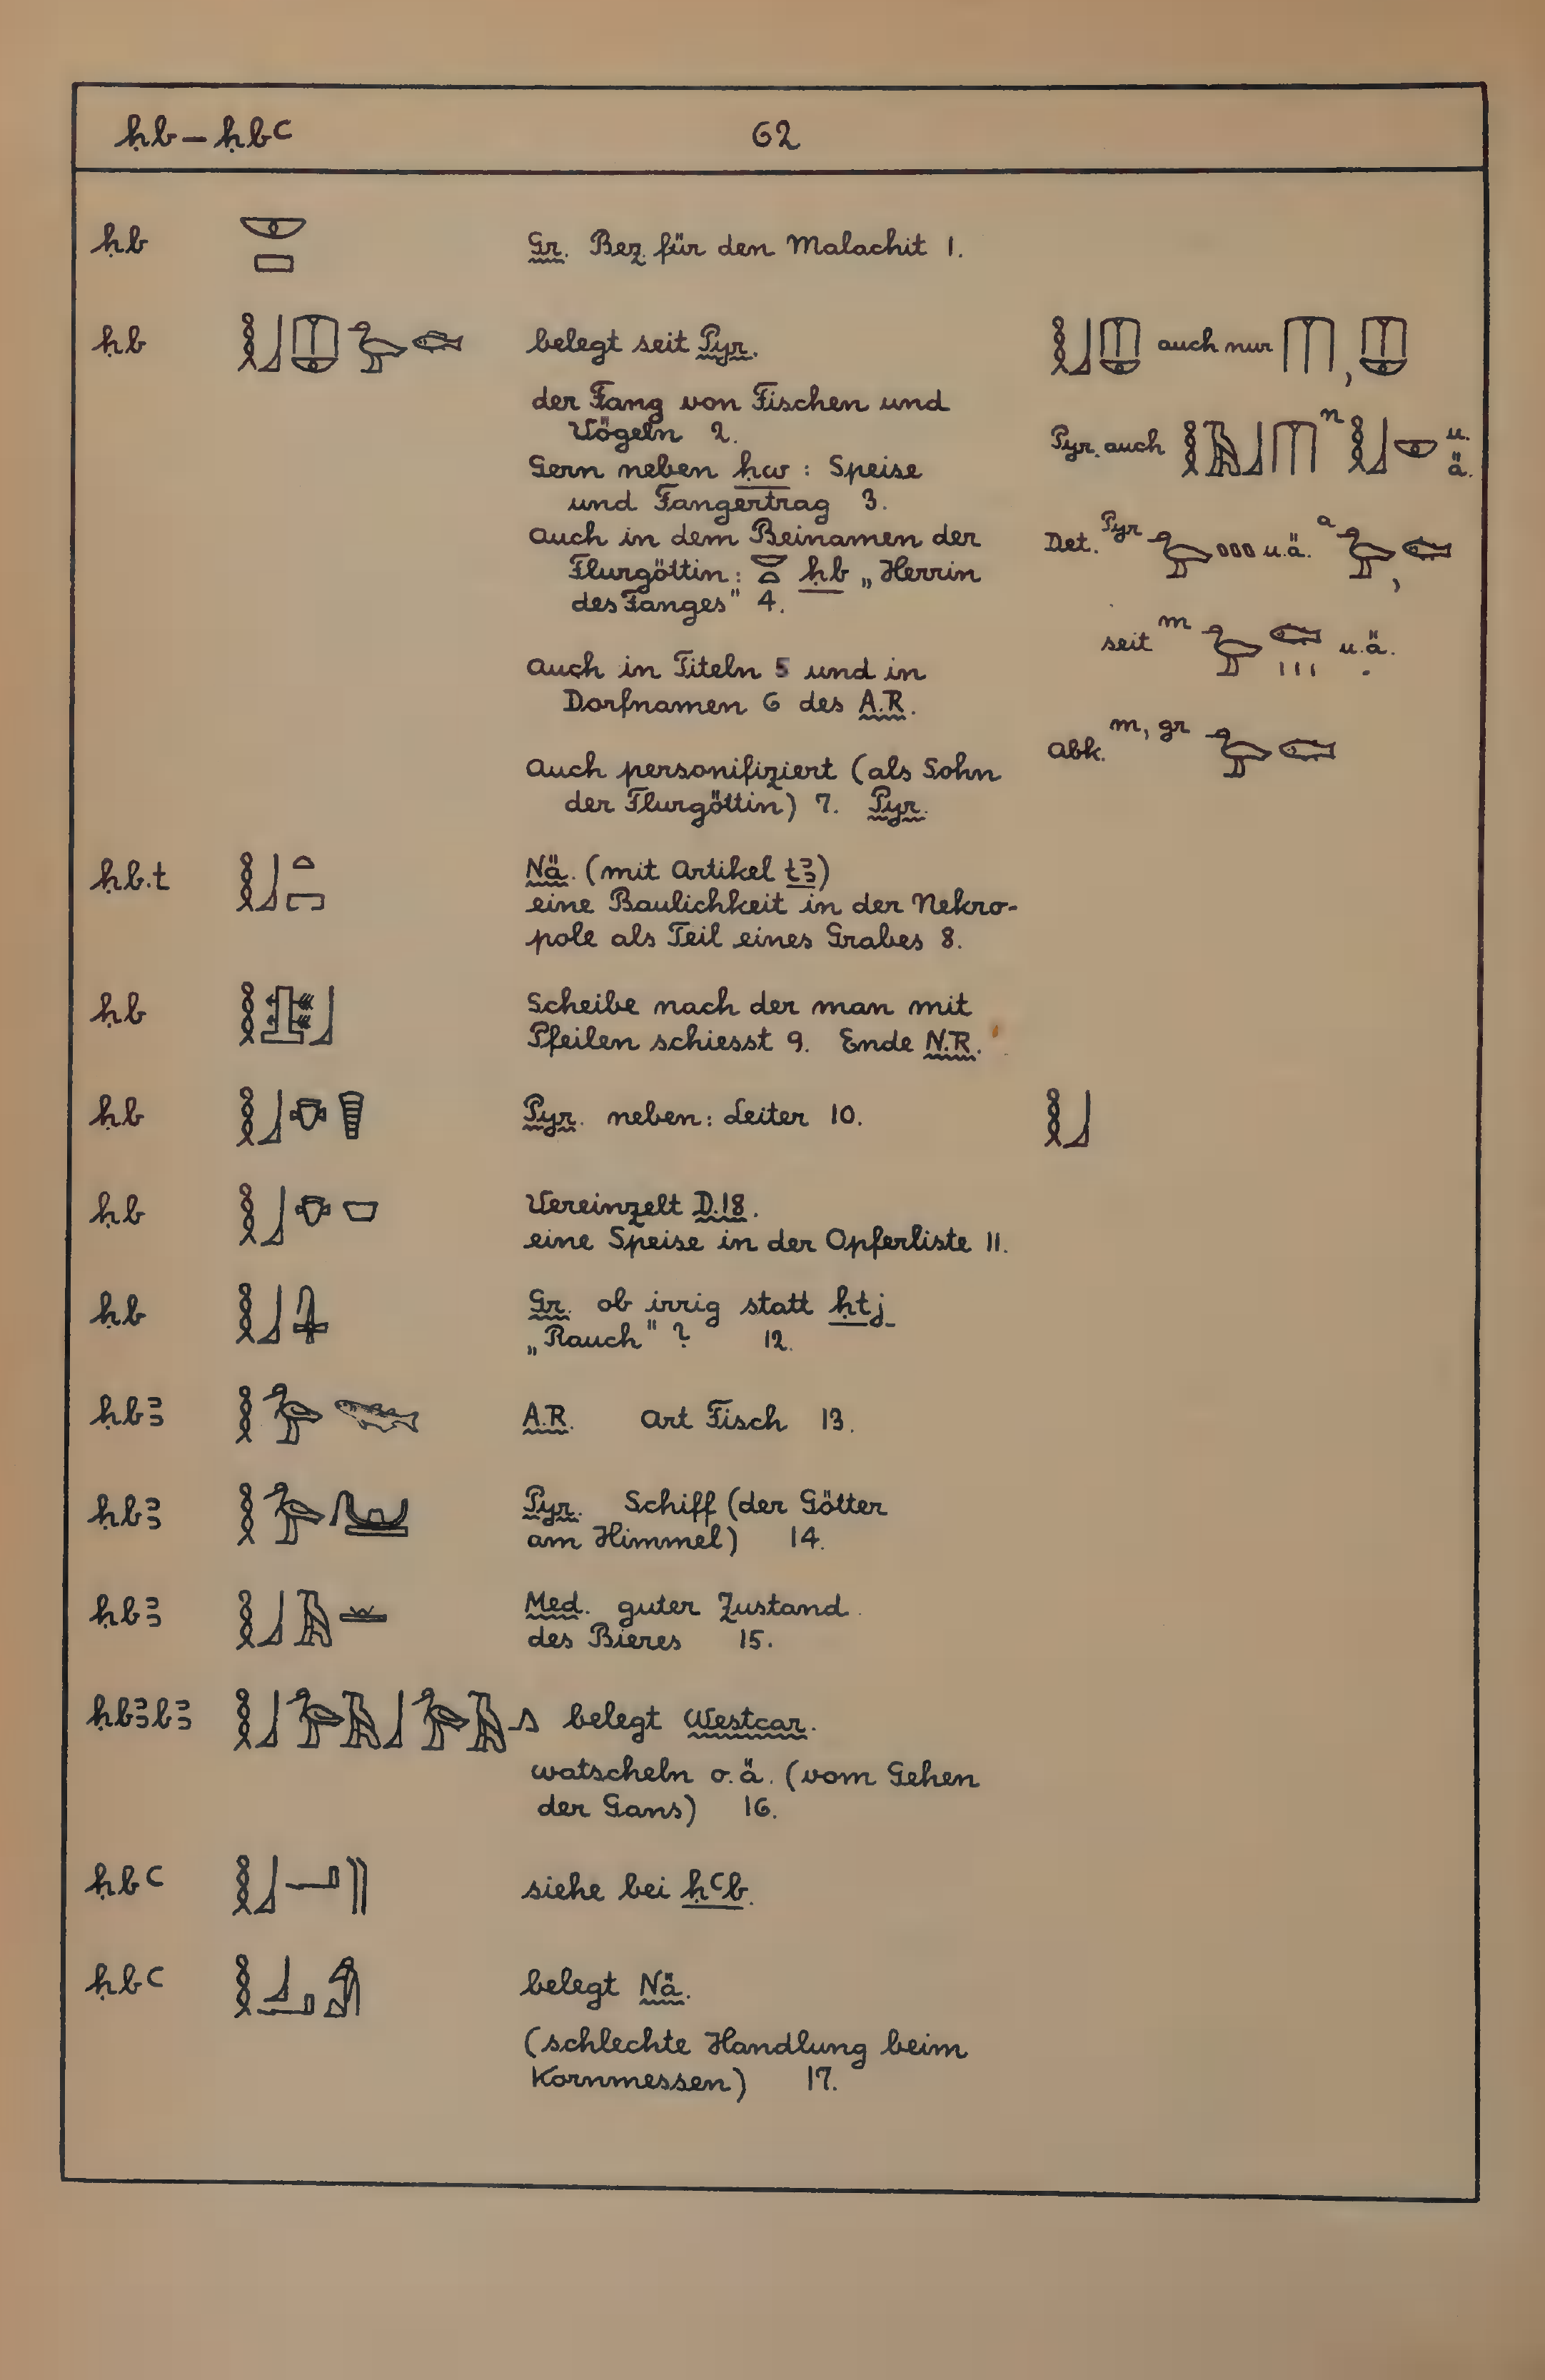 ḥb – ḥbꜥ 62
ḥb Gr. Bez. für den Malachit 1.
ḥb belegt seit Pyr. auch nur ,
der Fang von Fischen und
Vögeln 2.
Pyr. auch n u. ä.
Gern neben ḥw : Speise
und Fangertrag 3.
auch in dem Beinamen der
Det. Pyr u. ä. a ,
Flurgöttin: ḥb „Herrin
des Fanges" 4.
seit m u. ä.
auch in Titeln 5 und in
Dorfnamen 6 des A.R.
Abk. m, gr
auch personifiziert (als Sohn
der Flurgöttin) 7. Pyr.
ḥb.t Nä. (mit Artikel tꜣ)
eine Baulichkeit in der Nekro-
pole als Teil eines Grabes 8.
ḥb Scheibe nach der man mit
Pfeilen schiesst 9. Ende N.R.
ḥb Pyr. neben: Leiter 10.
ḥb Vereinzelt D.18.
eine Speise in der Opferliste 11.
ḥb Gr. ob irrig statt ḥtj
„Rauch" ? 12.
ḥbꜣ A.R. Art Fisch 13.
ḥbꜣ Pyr. Schiff (der Götter
am Himmel) 14.
ḥbꜣ Med. guter Zustand
des Bieres 15.
ḥbꜣbꜣ belegt Westcar.
watscheln o. ä. (vom Gehen
der Gans) 16.
ḥbꜥ siehe bei ḥꜥb.
ḥbꜥ belegt Nä.
(schlechte Handlung beim
Kornmessen) 17.